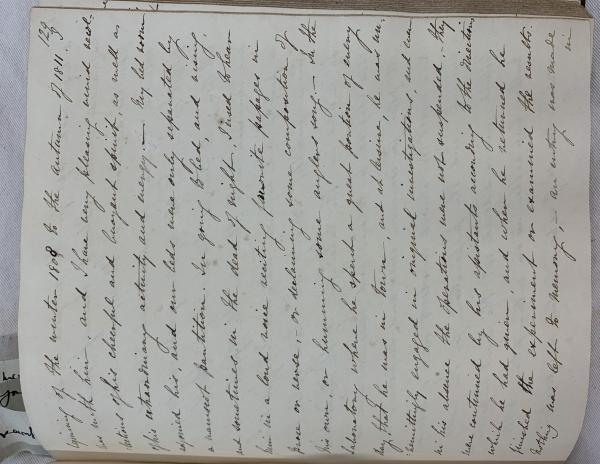 123
ginning of the winter 1808 to the autumn of 1811. I
was with him and I have very pleasing vivid recol-
lections of his cheerful and buoyant spirit, as well as
of his extraordinary activity and energy. — My bed room
adjoined his, and our beds were only separated by
a wainscot partition. In going to bed and rising,
and sometimes in the dead of night, I used to hear
him in a loud voice reciting favorite passages in
prose or verse, – or declaiming some composition of
his own, or humming some anglers song. – In the
Laboratory where he spent a great portion of every
day that he was in town, and at leisure, he was un-
remittingly engaged in original investigations, and even
in his absence the operations were not suspended: they
were continued by his assistants according to the directions
which he had given, and when he returned he
finished the experiment or examined the results.
Nothing was left to memory; – an entry was made
in